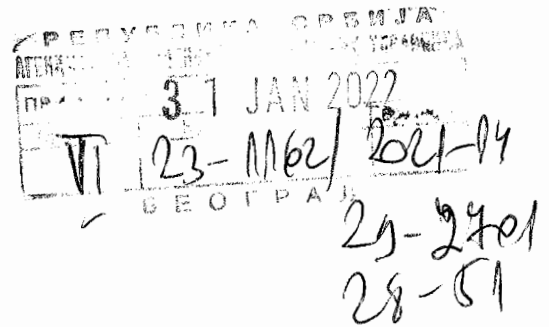 РЕПУБЛИКА СРБИЈА
31 JAN 2022
VI 23-1162/2021-14
БЕОГРАД
29-2701
28-51